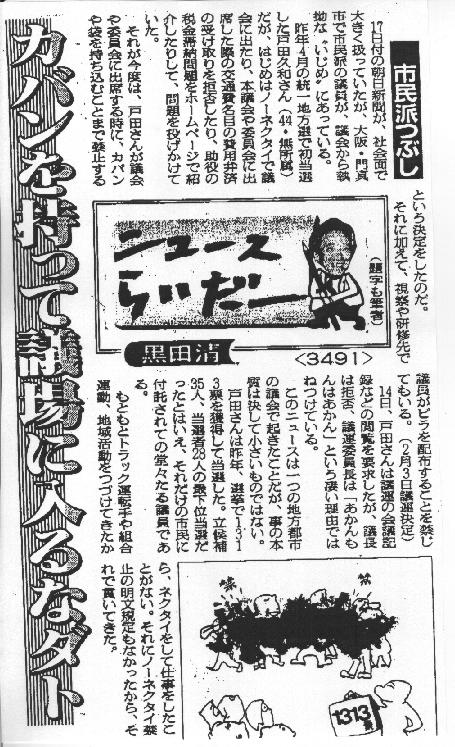 カバンを持って議場に入るなダト
市民派つぶし
17日付の朝日新聞が、社会面で
大きく扱っていたが、大阪・門真
市で市民派の議員が、議会から執
拗な“いじめ”にあっている。
昨年4月の統一地方選で初当選
した戸田久和さん(44・無所属)
だが、はじめはノーネクタイで議
会に出たり、本議会や委員会に出
席した際の交通費名目の費用弁済
の受け取りを拒否したり、助役の
税金滞納問題をホームページで紹
介したりして、問題を投げかけて
いた。
それが今度は、戸田さんが議会
や委員会に出席する時に、カバン
や袋を持ち込むことまで禁止する
という決定をしたのだ。
それに加えて、視察や研修先で
ニュース
らいだー
(題字も筆者)
黒田清
<3491>
議員がビラを配布することを禁じ
てもいる。(2月3日議運決定)
14日、戸田さんは議運の会議記
録などの閲覧を要求したが、議長
は拒否、議運委員長は「あかんも
んはあかん」という凄い理由では
ねつけている。
このニュースは一つの地方都市
の議会で起きたことだが、事の本
質は決して小さいものではない。
戸田さんは昨年、選挙で131
3票を獲得して当選した。立候補
35人、当選者28人の最下位当選だ
ったとはいえ、それだけの市民に
付託されての堂々たる議員であ
る。
もともとトラック運転手や組合
運動、地域活動をつづけてきたか
ら、ネクタイをして仕事をしたこ
とがない。それにノーネクタイ禁
止の明文規定もなかったから、そ
れで貫いてきた。
1313
票